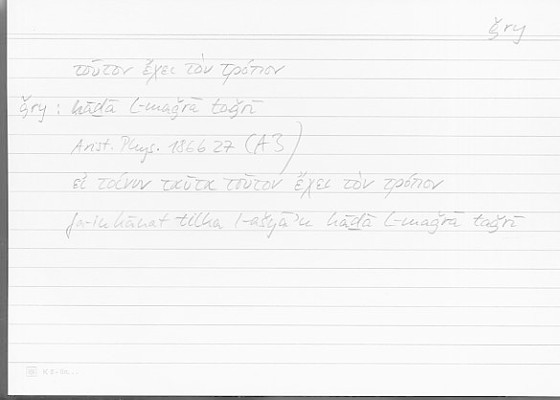 ǧry
τοῦτον ἔχει τὸν τρόπον
ǧry : hāḏā l-maǧrā taǧrī
Arist. Phys. 186b 27 (A3)
εἰ τοίνυν ταῦτα τοῦτον ἔχει τὸν τρόπον
fa-in kānat tilka l-ašyāʾu hāḏā l-maǧrā taǧrī